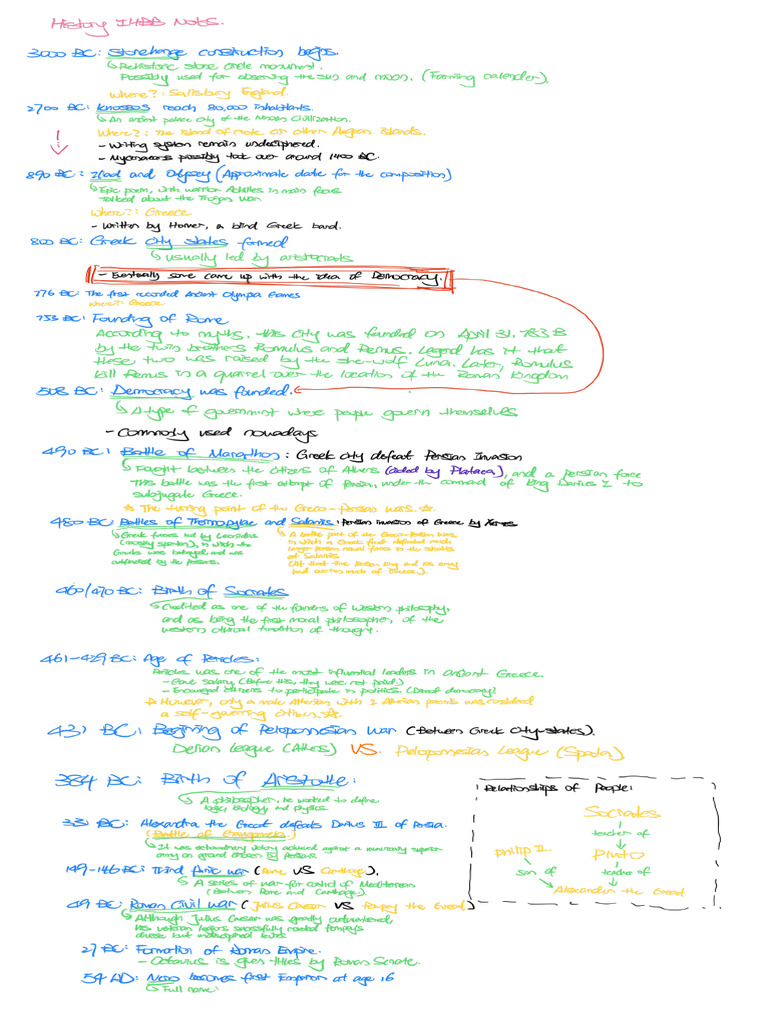 History IHBB Notes.
3000 BC: Stonehenge construction begins.
Prehistoric stone circle monument.
Possibly used for observing the sun and moon. (Farming calender)
Where?: Salisbury England.
2700 BC: Knossos reach 80,000 inhabitants.
An ancient palace city of the Minoan Civilization.
Where?: The island of Crete or other Aegean islands.
- Writing system remain undeciphered.
- Mycenaeans possibly took over around 1400 BC.
890 BC: Iliad and Odyssey (Approximate date for the composition)
Epic poem, with warrior Achilles in main focus
talked about the Trojan War
Where?: Greece
- Written by Homer, a blind Greek bard.
800 BC: Greek city states formed
usually led by aristocrats
- Eventually some came up with the idea of Democracy.
776 BC: The first recorded Ancient Olympia Games
Where?: Greece
753 BC: Founding of Rome
According to myths, this city was founded on April 31, 753 B
by the twin brothers Romulus and Remus. Legend has it that
these two was raised by the she-wolf Luna. Later, Romulus
kill Remus in a quarrel over the location of the Roman Kingdom
508 BC: Democracy was founded.
A type of government where people govern themselves
- Commonly used nowadays
490 BC: Battle of Marathon: Greek city defeat Persian Invasion
Fought between the citizens of Athens (aided by Plataea), and a Persian force
This battle was the first attempt of Persian, under the command of king Darius I to
subjugate Greece.
☆ The turning point of the Greco-Persian wars. ☆
480 BC: Battles of Thermopylae and Salamis: Persian invasion of Greece by Xerxes
Greek forces led by Leonidas
(mostly spartan), in which the
Greeks was betrayed and was
outflanked by the Persians.
A battle part of the Greco-Persian Wars
in which a Greek fleet defeated much
larger Persian naval forces in the straits
at Salamis
(At that time Persian king and his army
had overrun much of Greece).
460/470 BC: Birth of Socrates
Credited as one of the founders of Western philosophy,
and as being the first moral philosopher, of the
western ethical tradition of thought.
461-429 BC: Age of Pericles:
Pericles was one of the most influential leaders in ancient Greece.
- Gave salary (Before this, they were not paid)
- Encouraged citizens to participate in politics (Direct democracy)
☆ However, only a male Athenian with 2 Athenian parents was considered
a self-governing citizen. ☆
431 BC: Beginning of Peloponnesian War (Between Greek City-states).
Delian League (Athens) VS. Peloponnesian League (Sparta)
384 BC: Birth of Aristotle:
A philosopher, he worked to define
logic, biology and physics
331 BC: Alexandra the Great defeats Darius III of Persia.
(Battle of Gaugamela)
It was extraordinary victory achieved against a numerically superior
army on ground chosen by Persians
149-146 BC: Third Punic war (Rome VS Carthage).
A series of war for control of Mediterranean
(Between Rome and Carthage)
49 BC: Roman Civil war (Julius Caesar VS Pompey the Great)
Although Julius Caesar was greatly outnumbered,
his veteran legions successfully routed Pompey's
27 BC: Formation of Roman Empire.
- Octavius is given titles by Roman Senate.
54 AD: Nero becomes first Emperor at age 16
Full name:
Relationships of People:
Socrates
teacher of
Philip II. Pluto
son of teacher of
Alexander the Great